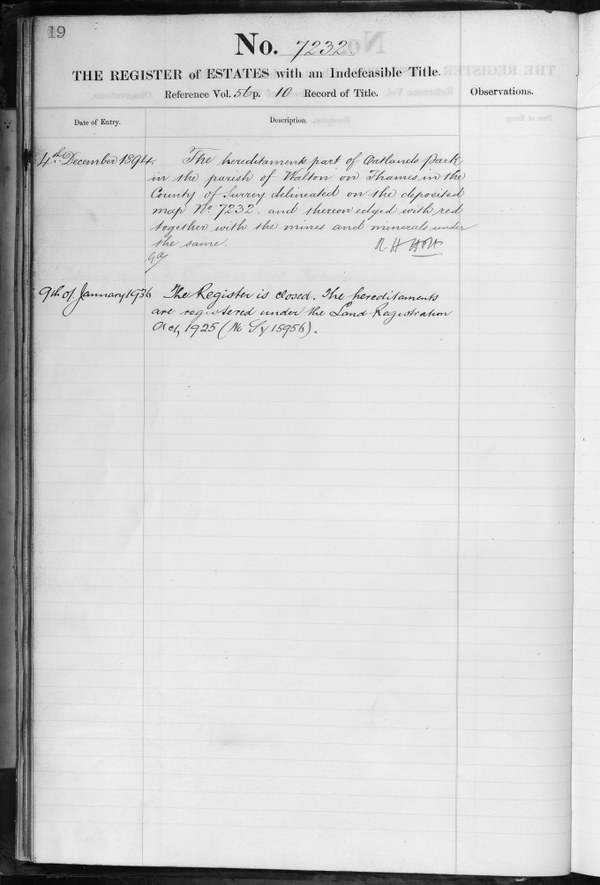 19
No. 7232
THE REGISTER of ESTATES with an Indefeasible Title.
Reference Vol. 56 p. 10 Record of Title.
Observations.
Date of Entry.
Description.
4th December 1894.
The hereditaments part of Oatlands Park
in the parish of Walton on Thames in the
County of Surrey delineated on the deposited
map No 7232. and thereon edged with red
together with the mines and minerals under
the same.
R H Holt
9th of January 1936
The Register is closed. The hereditaments
are registered under the Land Registration
Act, 1925 (No Sy 15956).